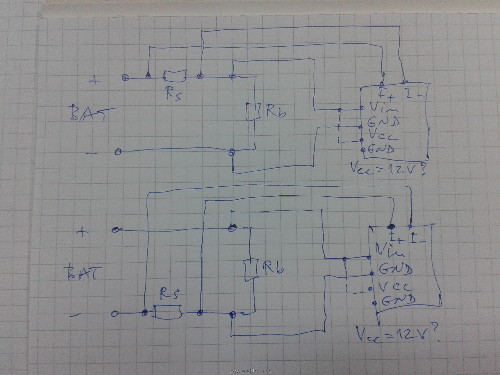 I+ I-
+
Rs
BAT
Rb
Vin
GND
Vcc
GND
-
Vcc=12V?
I+ I-
+
Vin
BAT
Rb
GND
Vcc
Rs
-
GND
Vcc=12V?